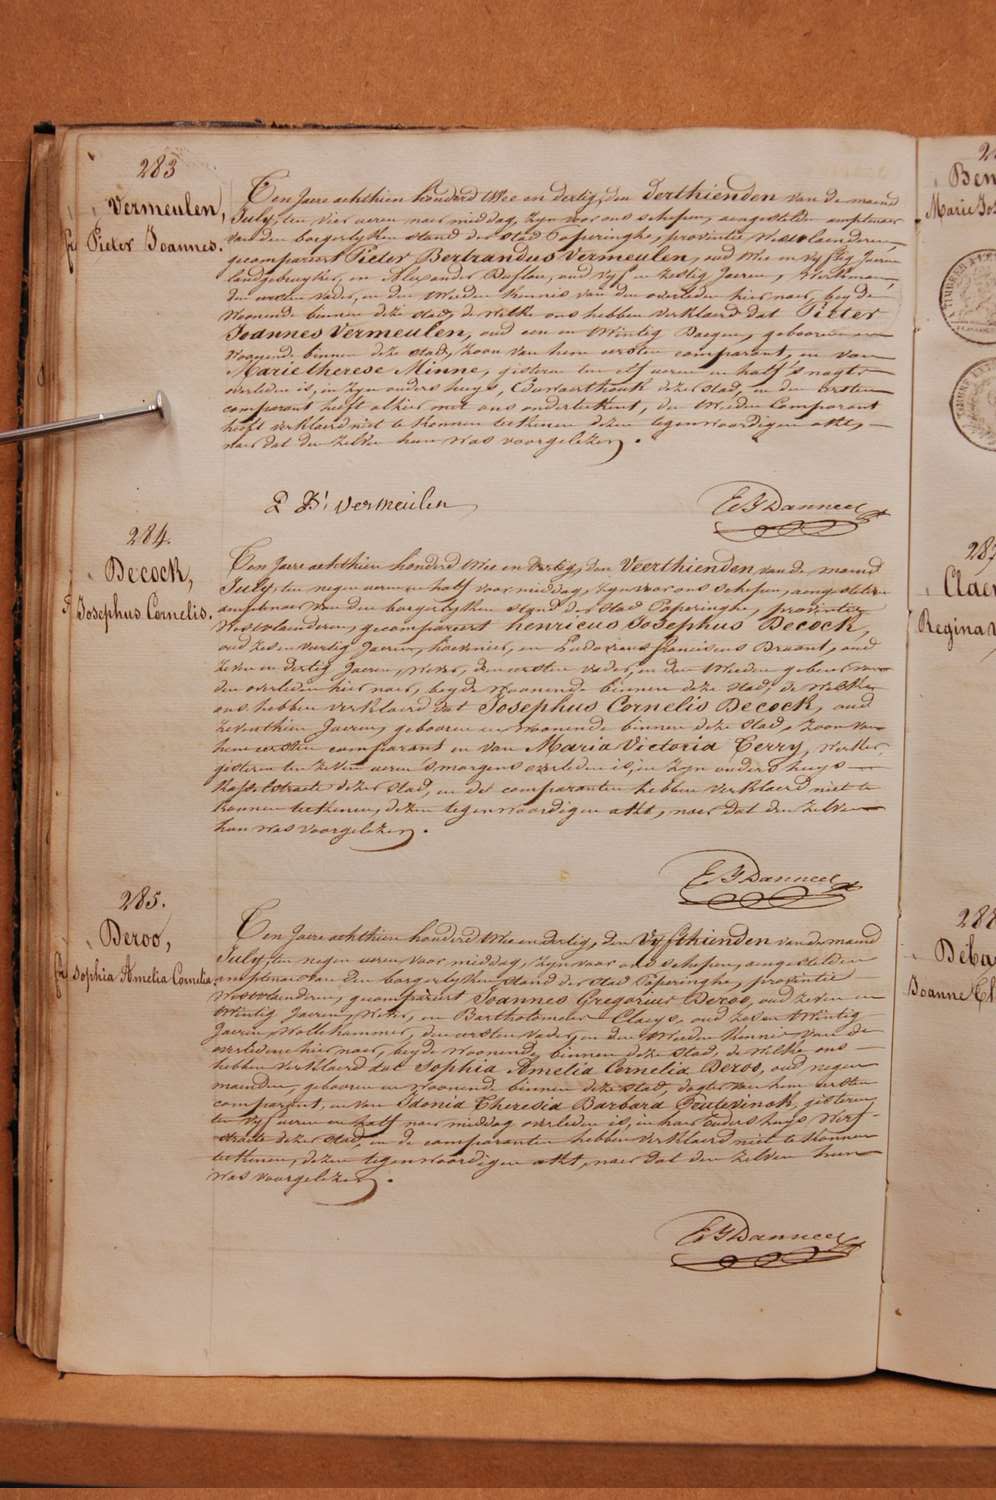 283
Vermeulen,
Pieter Joannes.
Ten Jaere achthien honderd twee en dertig, den Derthienden van de maend
July, ten vier uren naer middag, zyn voor ons schepen, aengestelden amptenaer
van den borgerlyken stand der stad Poperinghe, provintie Westvlaenderen,
gecompareert Pieter Bertrandus Vermeulen, oud twee en vyftig Jaeren
landgebruyker, en Alexander Duflou, oud vyf en zestig Jaeren, Werkman,
den eersten vader, en den tweeden kennis van den overleden hier naer, beyde
woonende binnen deze stad, de welke ons hebben verklaerd dat Pieter
Joannes Vermeulen, oud een en twintig Daegen, gebooren en
woonende binnen deze stad, zoon van hem eersten comparant, en van
Marie therese Minne, gisteren ten elf uren en half s'nagts
overleden is, in zyn ouders huys, dezer stad, en den eersten
comparant heeft alhier met ons onderteekent, den tweeden Comparant
heeft verklaerd niet te konnen teekenen dezen tegenwoordigen akt,
naer dat den zelven hun was voorgelezen.
P Bt vermeulen
E Y Danneel
284.
Decock,
Josephus Cornelis.
Ten Jaere achthien honderd twee en dertig, den Veerthienden van de maend
July, ten negen uren en half voor middag, zyn voor ons schepen, aengestelden
amptenaer van den borgerlyken stand der stad Poperinghe, provintie
Westvlaenderen, gecompareert henricus Josephus Decock,
oud zes en veertig Jaeren, hovenier, en Ludovicus franciscus Draant, oud
zeven en dertig Jaeren, Wever, den eersten vader, en den tweeden gebuer van
den overleden hier naer, beyde woonende binnen deze stad, de welke
ons hebben verklaerd dat Josephus Cornelis Decock, oud
zeventhien Jaeren, gebooren en woonende binnen deze stad, zoon van
hem eersten comparant en van Maria Victoria Terry, Werker,
gisteren ten zeven uren s'morgens overleden is, in zyn ouders huys
straete dezer stad, en de comparanten hebben verklaerd niet te
konnen teekenen, dezen tegenwoordigen akt, naer dat den zelven
hun was voorgelezen.
E Y Danneel
285.
Deroo,
Sophia Amelia Cornelia
Ten Jaere achthien honderd twee en dertig, den Vyfthienden van de maend
July, ten negen uren voor middag, zyn voor ons schepen, aengestelden
amptenaer van den borgerlyken stand der stad Poperinghe, provintie
Westvlaenderen, gecompareert Joannes Gregorius Deroo, oud zeven en
twintig Jaeren, Wever, en Bartholomeus Claeys, oud zes en twintig
Jaeren, Wollekammer, den eersten vader, en den tweeden kennis van de
overledene hier naer, beyde woonende binnen deze stad, de welke ons
hebben verklaerd dat Sophia Amelia Cornelia Deroo, oud negen
maenden, gebooren en woonende binnen deze stad, dogter van hem eersten
comparant, en van Idonia Theresia Barbara Feutevinck, gisteren
ten vyf uren en half naer middag overleden is, in haer ouders huys Werf
straete dezer stad, en de comparanten hebben verklaerd niet te konnen
teekenen, dezen tegenwoordigen akt, naer dat den zelven hun
was voorgelezen.
E Y Danneel
Ben
Marie Jos
287
Claer
Regina
288
Deba
Joanne Ch